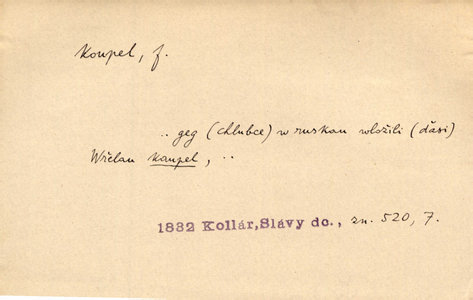 Koupel, f.
.. geg (chlubce) w ruskau wložili (ďasi)
Wřelau kaupel, ..
1832 Kollár,Slávy dc., zn. 520, 7.